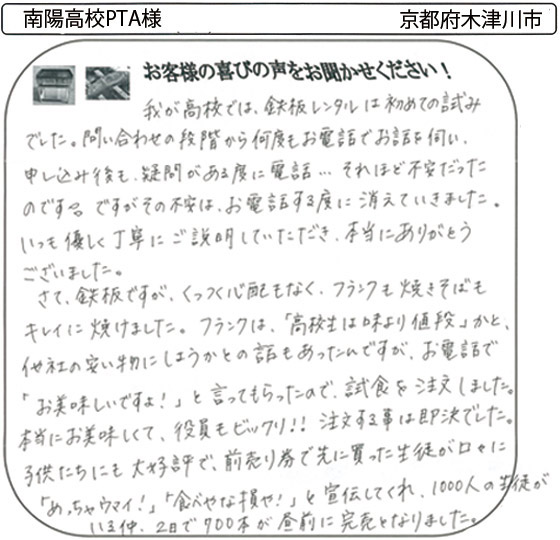 南陽高校PTA様 京都府木津川市
お客様の喜びの声をお聞かせください！
我が高校では、鉄板レンタルは初めての試み
でした。問い合わせの段階から何度もお電話でお話を伺い、
申し込み後も、疑問がある度に電話…それほど不安だった
のです。ですがその不安は、お電話する度に消えていきました。
いつも優しく丁寧にご説明していただき、本当にありがとう
ございました。
さて、鉄板ですが、くっつく心配もなく、フランクも焼きそばも
キレイに焼けました。フランクは、「高校生は味より値段」かと、
他社の安い物にしようかとの話もあったんですが、お電話で
「お美味しいですよ！」と言ってもらったので、試食を注文しました。
本当にお美味しくて、役員もビックリ!! 注文する事は即決でした。
子供たちにも大好評で、前売り券で先に買った生徒が口々に
「めっちゃウマイ！」「食べやな損や！」と宣伝してくれ、1000人の生徒が
いる中、2日で900本が昼前に完売となりました。